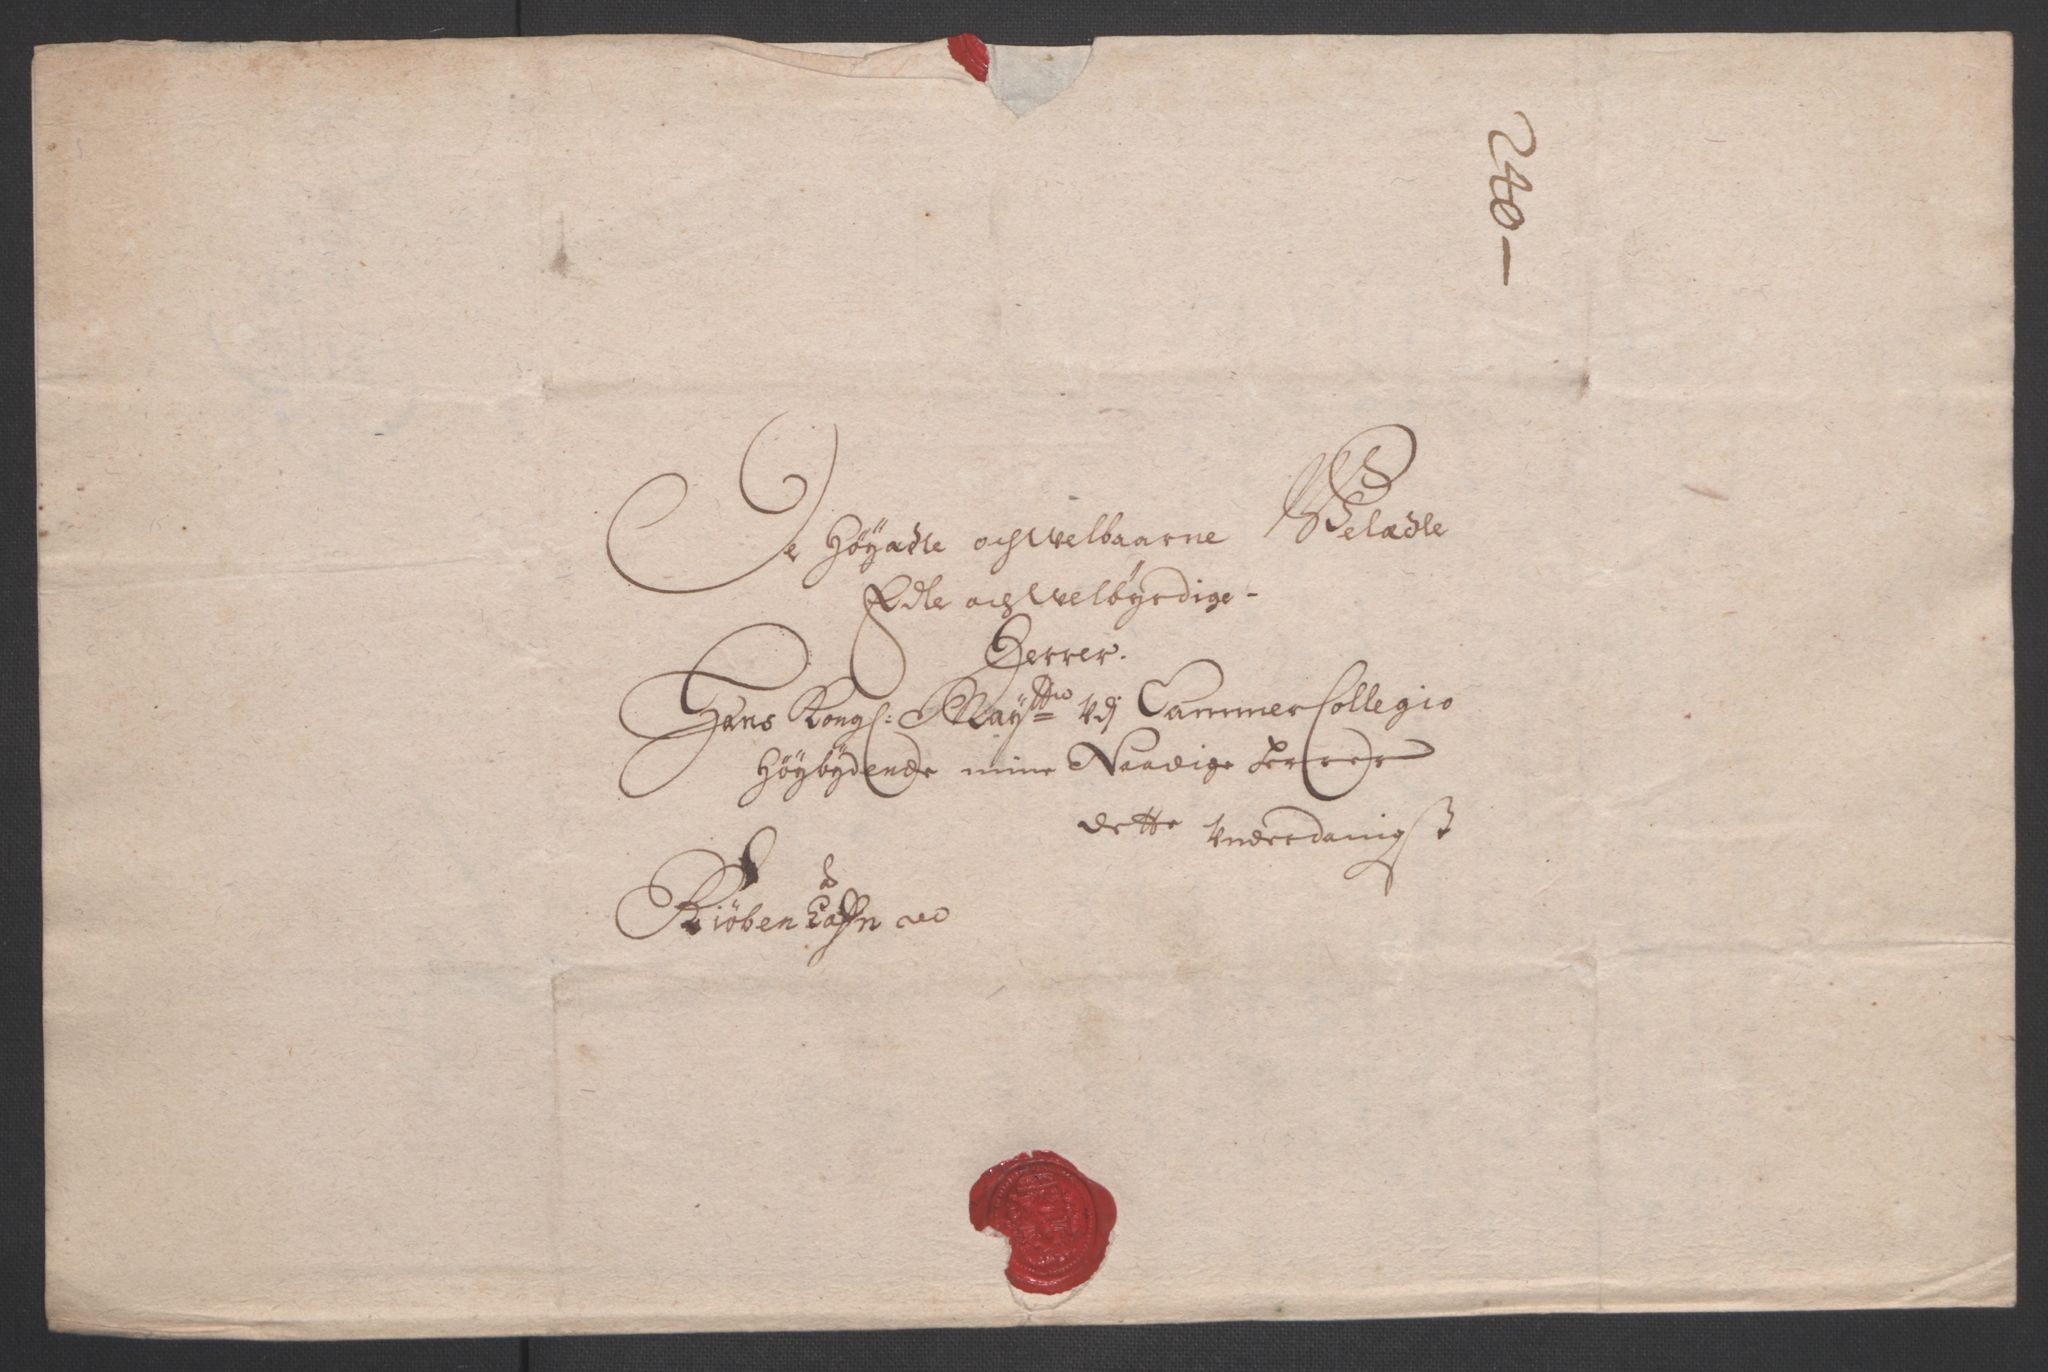 240 –
De Höyædle och Welbaarne Velædle
Edle och Welbÿrdige –
Herrer.
Hans Kongl: Maÿtts Vdj Cammer Collegio
Höybÿdende mine Naadige Herrer
dette Vnderdanigst
a
Kiöbenhaffn